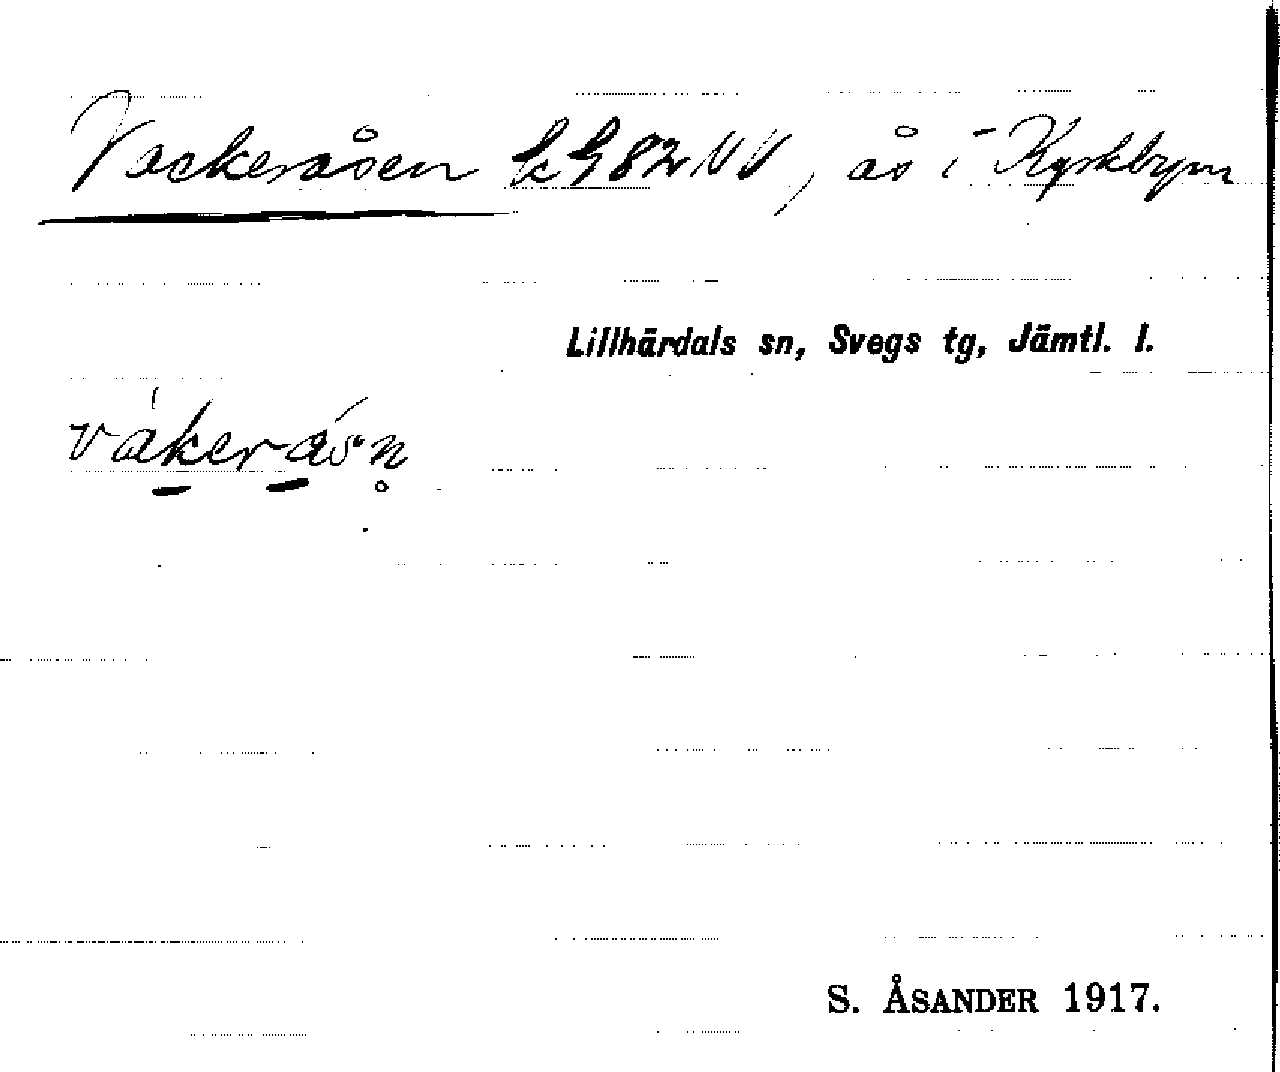 Vackeråsen k G 82 NV, ås i Kyrkbyn
Lillhärdals sn, Svegs tg, Jämtl. l.
våkeråsn
S. ÅSANDER 1917.